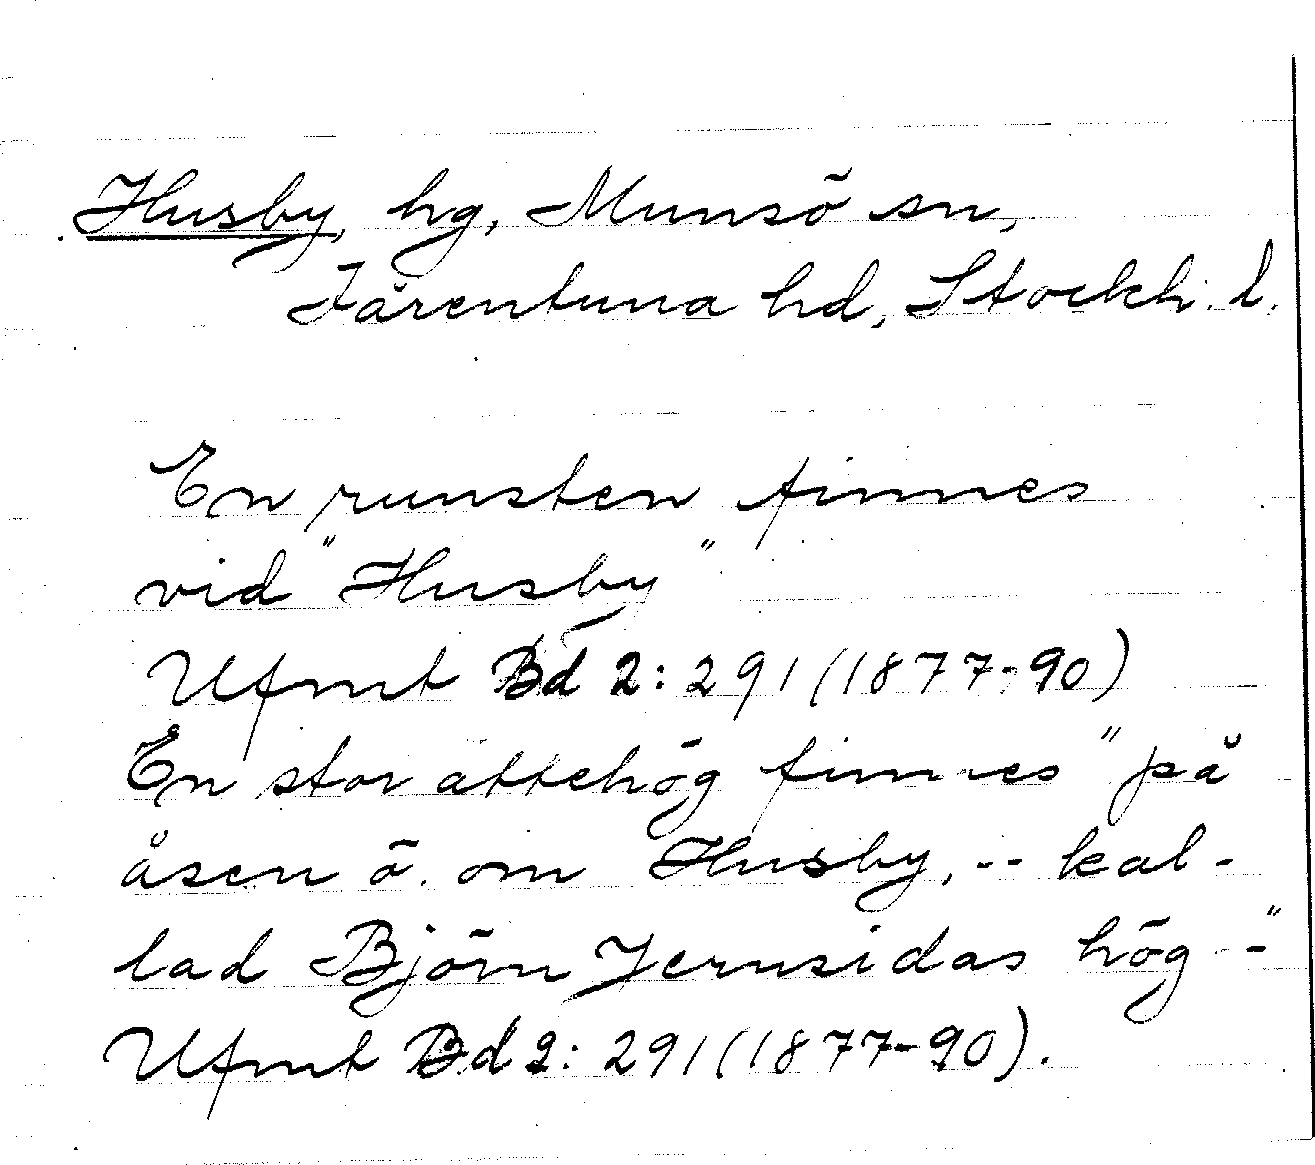 Husby, hg, Munsö sn,
Färentuna hd, Stockh. l.
En runsten finnes
vid "Husby"
Ufmt Bd 2: 291 (1877-90)
En stor ättehög finnes "på
åsen ö. om Husby, -- kal-
lad Björn Jernsidas hög --"
Ufmt Bd 2: 291 (1877-90).